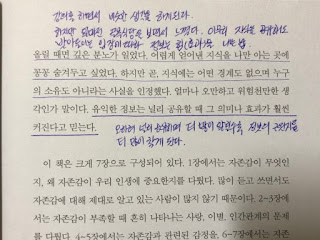 강의를 하면서 비슷한 생각을 하게된다.
하지만 위대한 강의들을 보면서 느꼈다. 아무리 지식을 공유해도
받아들이는 입장에 따라 정보는 효과를
올릴 때면 깊은 분노가 일었다. 어렵게 얻어낸 지식을 나만 아는 곳에
꽁꽁 숨겨두고 싶었다. 하지만 곧, 지식에는 어떤 경계도 없으며 누구
의 소유도 아니라는 사실을 인정했다. 얼마나 오만하고 위험천만한 생
각인가 말이다. 유익한 정보는 널리 공유할 때 그 의미나 효과가 훨씬
커진다고 믿는다.
오히려 널리 더 많이 정보의
더 많이 알게 된다.
이 책은 크게 7장으로 구성되어 있다. 1장에서는 자존감이 무엇인
지, 왜 자존감이 우리 인생에 중요한지를 다뤘다. 많이 듣고 쓰면서도
자존감에 대해 제대로 알고 있는 사람이 많지 않기 때문이다. 2~3장에
서는 자존감이 부족할 때 흔히 나타나는 사랑, 이별, 인간관계의 문제
를 다뤘다. 4~5장에서는 자존감과 관련된 감정을, 6~7장에서는